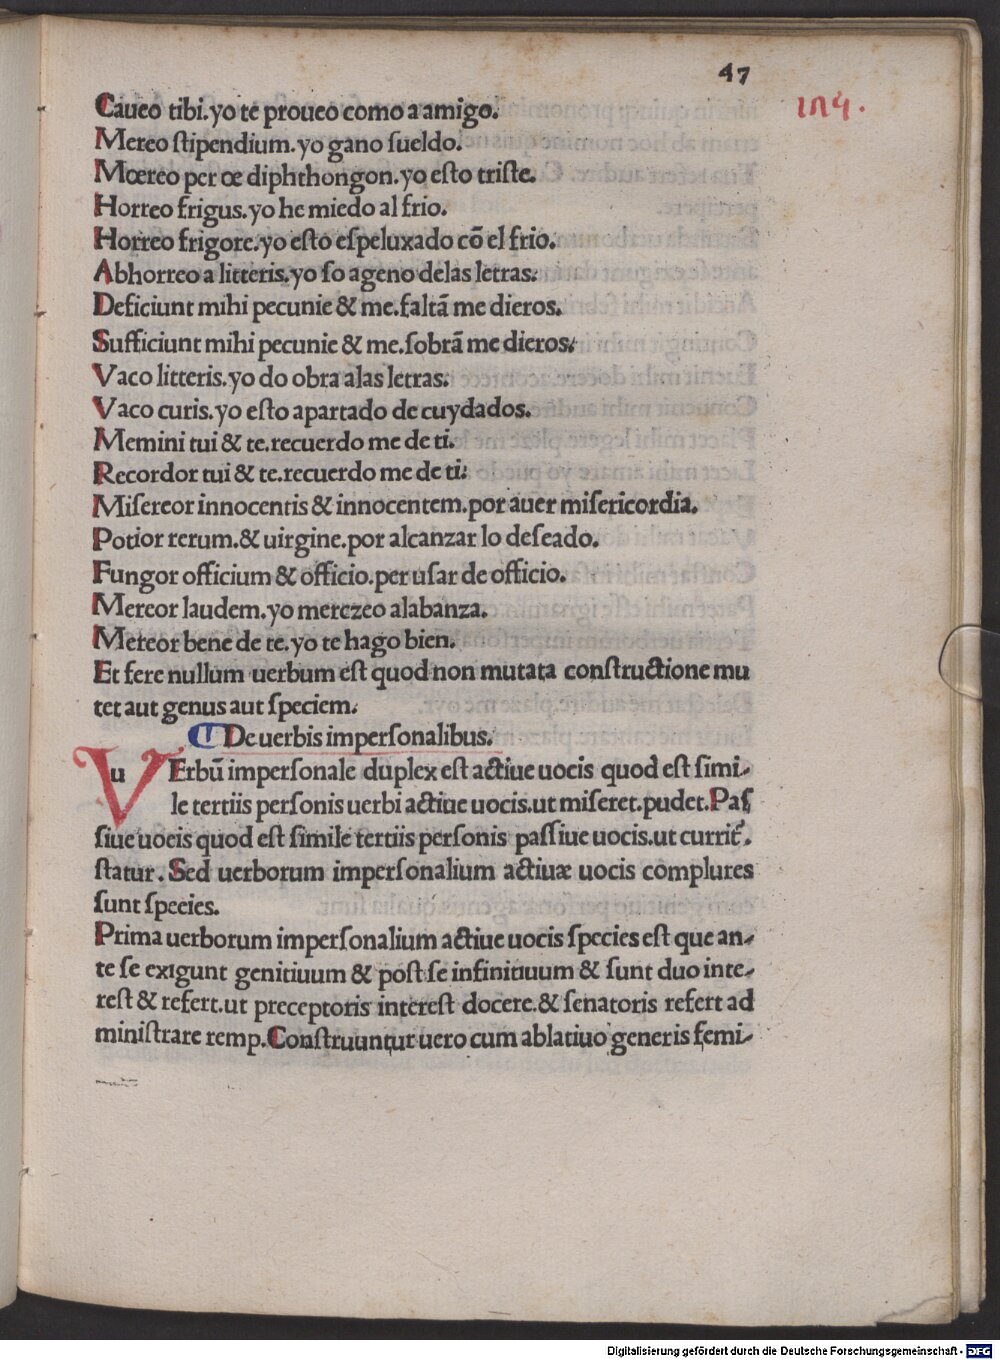 47
Caueo tibi.yo te proueo como a amigo.
Mereo ſtipendium.yo gano ſueldo.
Mœreo per œ diphthongon.yo eſto triſte.
Horreo frigus.yo he miedo al frio.
Horreo frigore.yo eſto eſpeluxado cõ el frio.
Abhorreo a litteris.yo ſo ageno delas letras.
Deficiunt mihi pecunie & me.faltã me dieros.
Sufficiunt mihi pecunie & me.ſobrã me dieros.
Vaco litteris.yo do obra alas letras.
Vaco curis.yo eſto apartado de cuydados.
Memini tui & te.recuerdo me de ti.
Recordor tui & te.recuerdo me de ti.
Miſereor innocentis & innocentem.por auer miſericordia.
Potior rerum.& uirgine.por alcanzar lo deſeado.
Fungor officium & officio.per uſar de officio.
Mereor laudem.yo merezeo alabanza.
Mereor bene de te.yo te hago bien.
Et fere nullum uerbum eſt quod non mutata conſtructione mu
tet aut genus aut ſpeciem.
De uerbis imperſonalibus.
VErbũ imperſonale duplex eſt actiue uocis quod eſt ſimi-
le tertiis perſonis uerbi actiue uocis.ut miſeret.pudet.Paſ
ſiue uocis quod eſt ſimile tertiis perſonis paſſiue uocis.ut currit̃.
ſtatur. Sed uerborum imperſonalium actiuæ uocis complures
ſunt ſpecies.
Prima uerborum imperſonalium actiue uocis ſpecies eſt que an-
te ſe exigunt genitiuum & poſt ſe infinitiuum & ſunt duo inte-
reſt & refert.ut preceptoris intereſt docere.& ſenatoris refert ad
miniſtrare remp.Conſtruuntur uero cum ablatiuo generis femi-
Digitalisierung gefördert durch die Deutsche Forschungsgemeinschaft - DFG